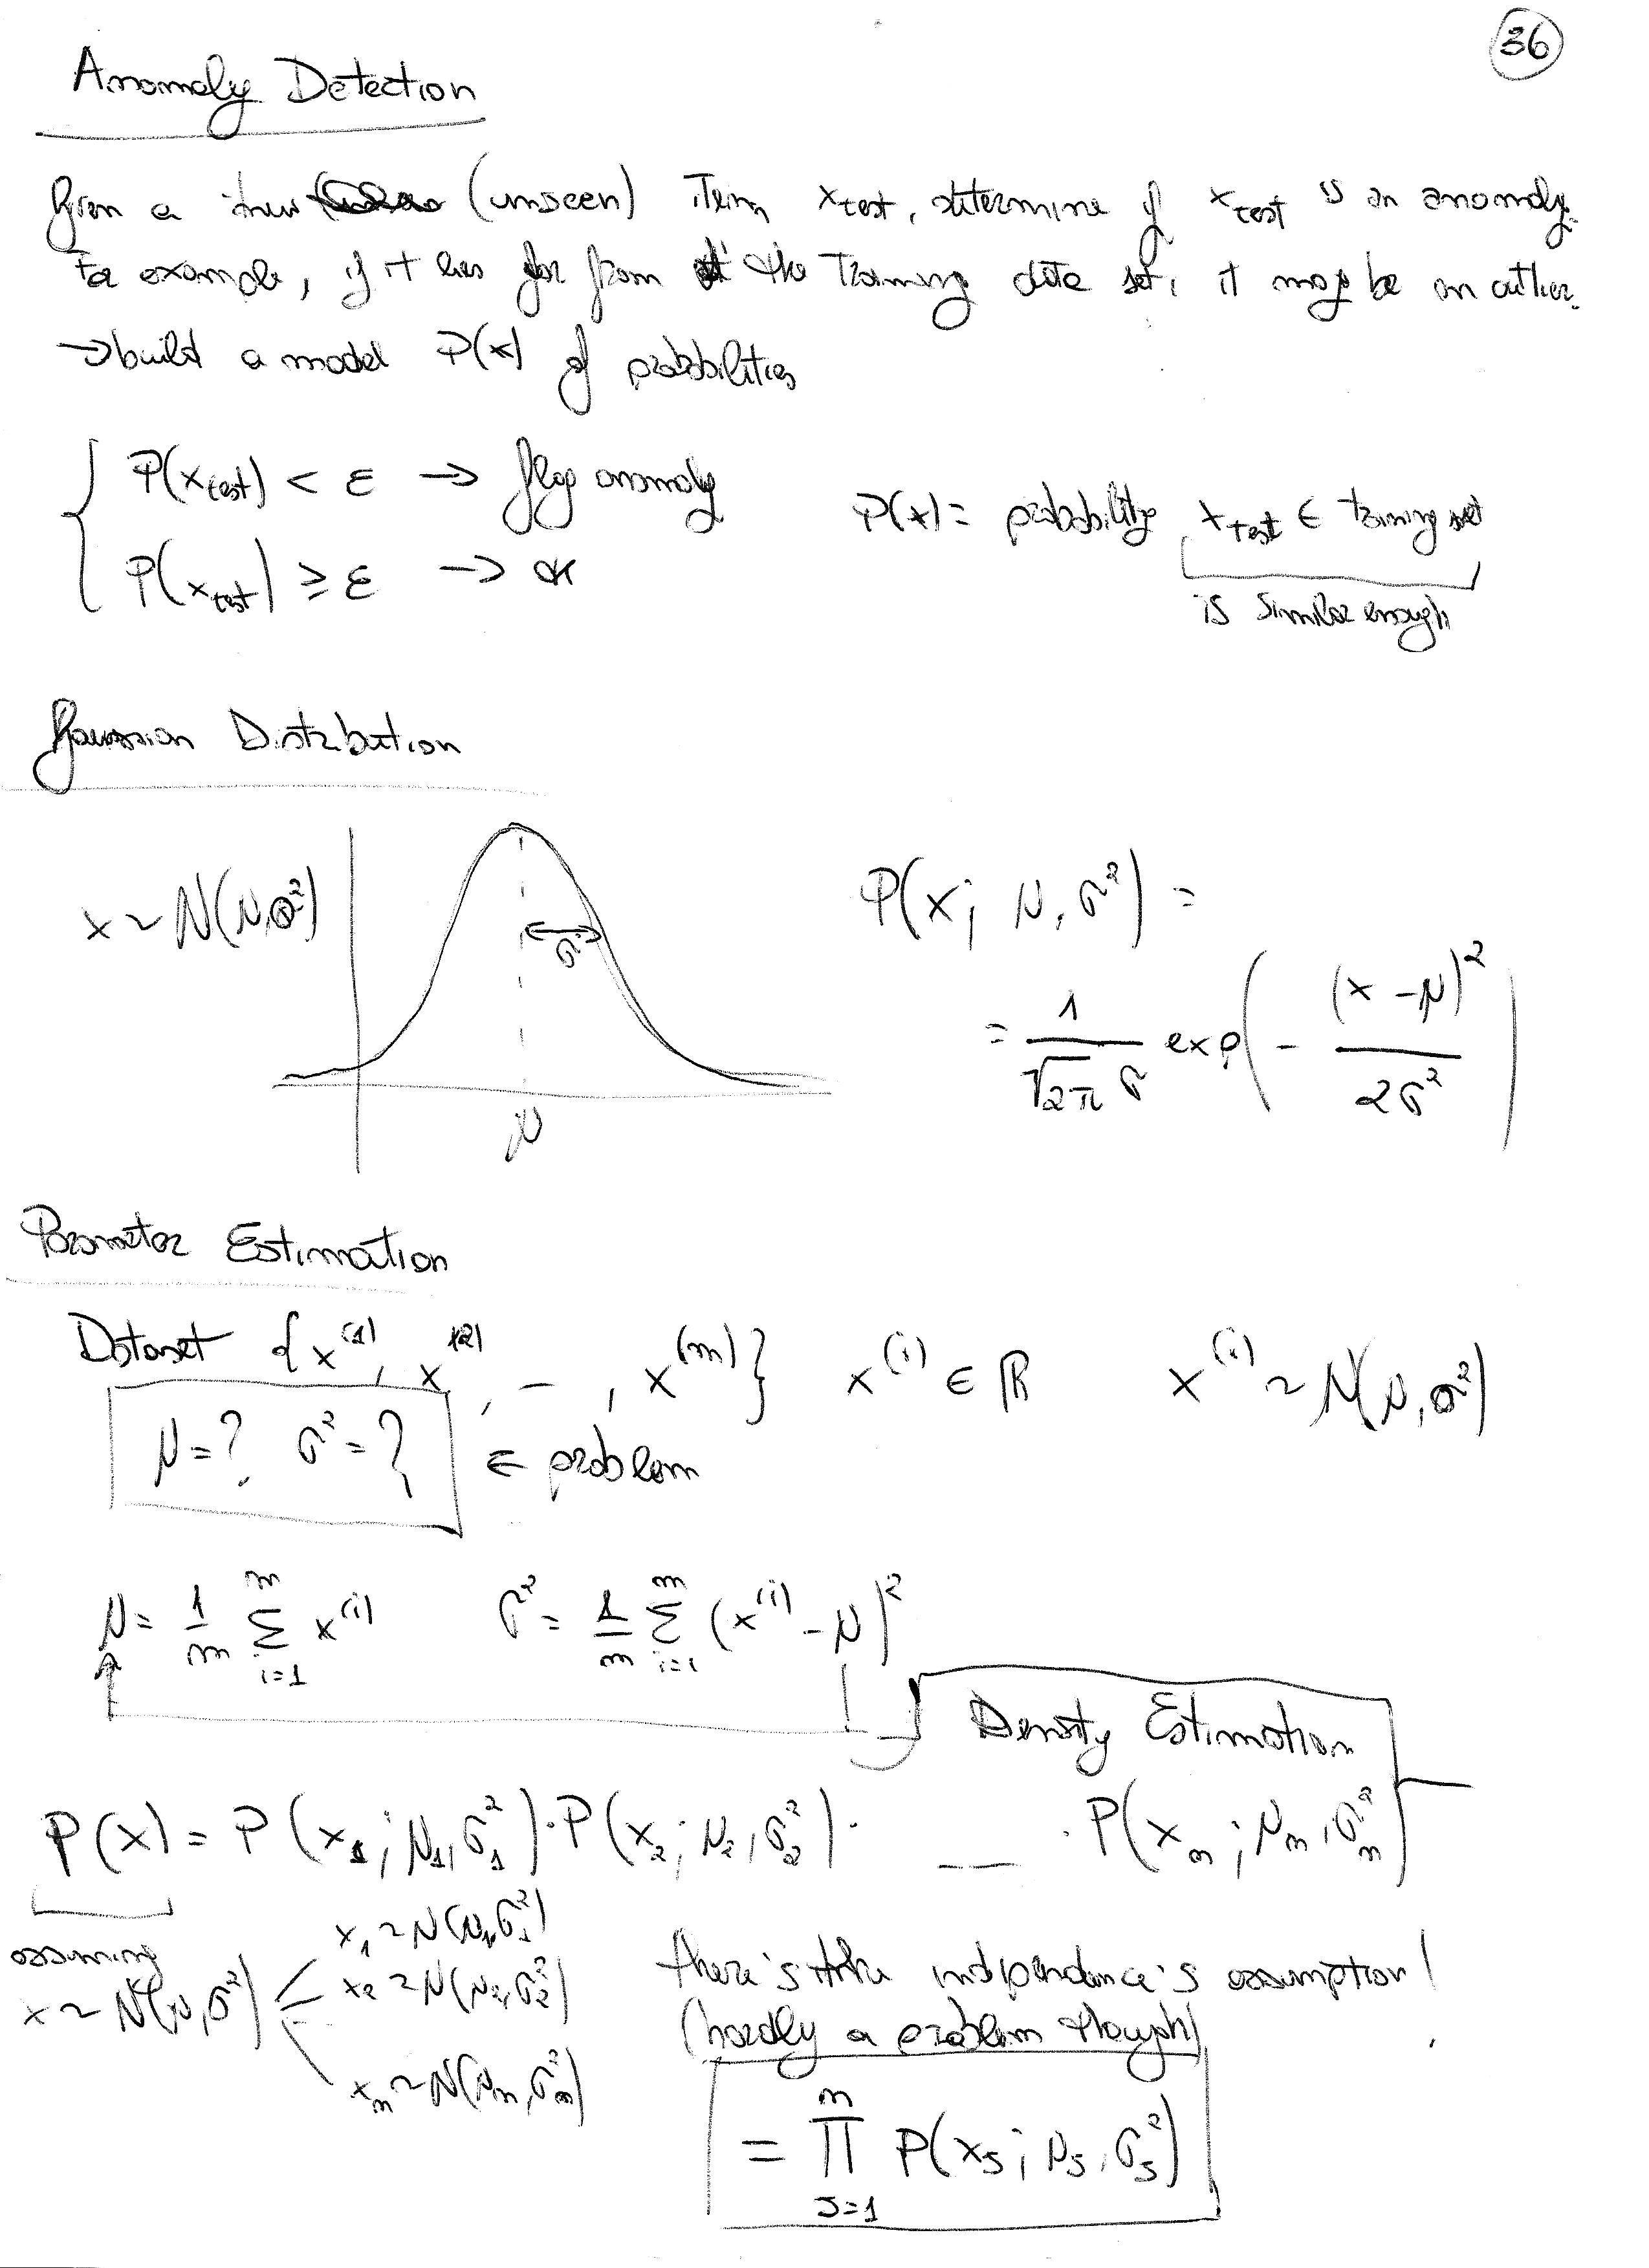 36
Anomaly Detection
Given a new (unseen) item x_test, determine if x_test is an anomaly.
For example, if it lies far from the training data set, it may be an outlier.
→ build a model P(x) of probabilities
{ P(x_test) < ε → flag anomaly
P(x_test) ≥ ε → OK
P(x) = probability x_test ∈ training set
is similar enough
Gaussian Distribution
x ~ N(μ, σ²)
σ
μ
P(x; μ, σ²) =
= 1/(√2π σ) exp(- (x - μ)²/(2σ²))
Parameter Estimation
Dataset {x^(1), x^(2), _ , x^(m)} x^(i) ∈ ℝ x^(i) ~ N(μ, σ²)
μ = ? σ² = ? ← problem
μ = 1/m Σ_{i=1}^m x^(i) σ² = 1/m Σ_{i=1}^m (x^(i) - μ)²
Density Estimation
P(x) = P(x_1; μ_1, σ_1²) · P(x_2; μ_2, σ_2²) · __ · P(x_n; μ_n, σ_n²)
assuming
x ~ N(μ, σ²)
x_1 ~ N(μ_1, σ_1²)
x_2 ~ N(μ_2, σ_2²)
x_n ~ N(μ_n, σ_n²)
there's the independence's assumption!
(hardly a problem though)
= Π_{j=1}^n P(x_j; μ_j, σ_j²)